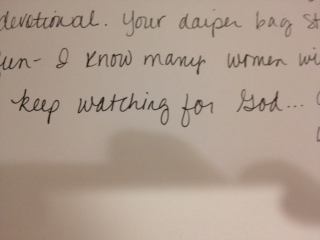 devotional. Your daiper bag st
fun- I know many women wi
keep watching for God...